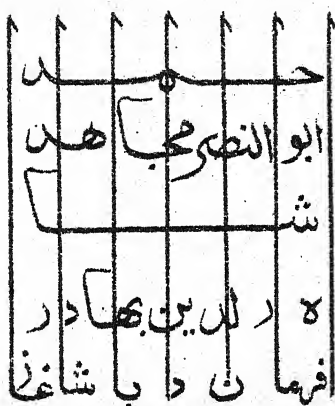 حمد
ابو النصر مجا هد
شا
ه ر لدين بهادر
فرما ن د با شاغاز